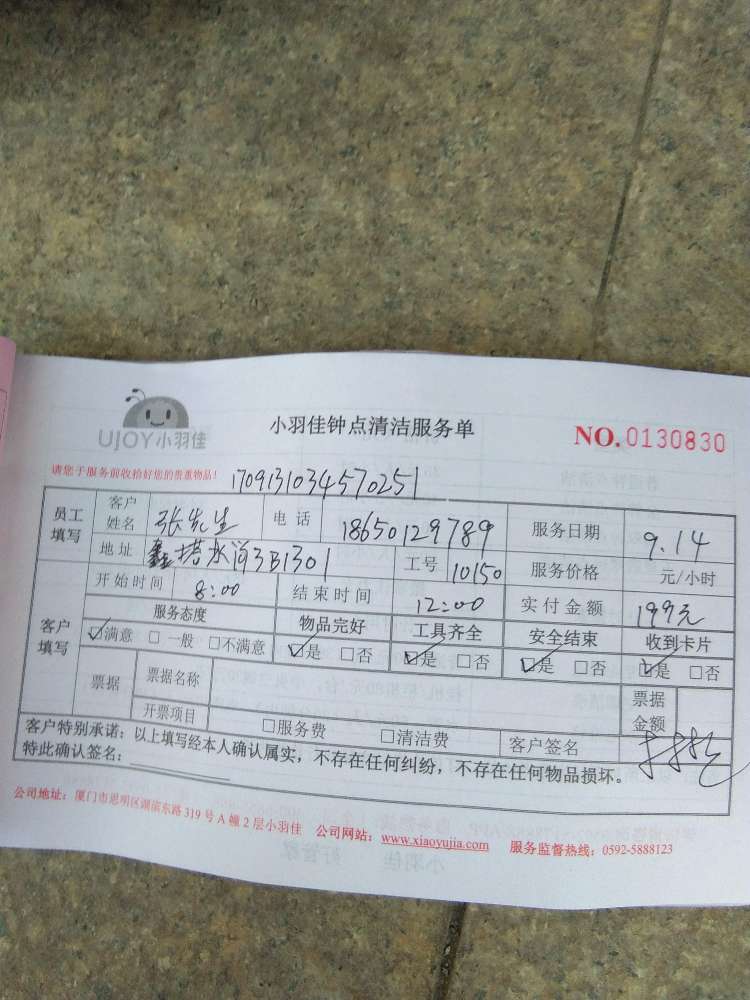 UJOY小羽佳
小羽佳钟点清洁服务单
NO.0130830
请您于服务前收拾好您的贵重物品!
170913103457025​1
员工填写 客户姓名 张先生 电话 18650129789 服务日期 9.14
地址 鑫塔水尚3B1301 工号 10150 服务价格 元/小时
开始时间 8:00 结束时间 12:00 实付金额 199元
客户填写 服务态度 物品完好 工具齐全 安全结束 收到卡片
☑满意 □一般 □不满意 ☑是 □否 ☑是 □否 ☑是 □否 ☑是 □否
票据 票据名称 票据金额
开票项目 □服务费 □清洁费 客户签名
客户特别承诺:以上填写经本人确认属实,不存在任何纠纷,不存在任何物品损坏。
特此确认签名:
公司地址:厦门市思明区湖滨东路319号A幢2层小羽佳 公司网站:www.xiaoyujia.com 服务监督热线:0592-5888123